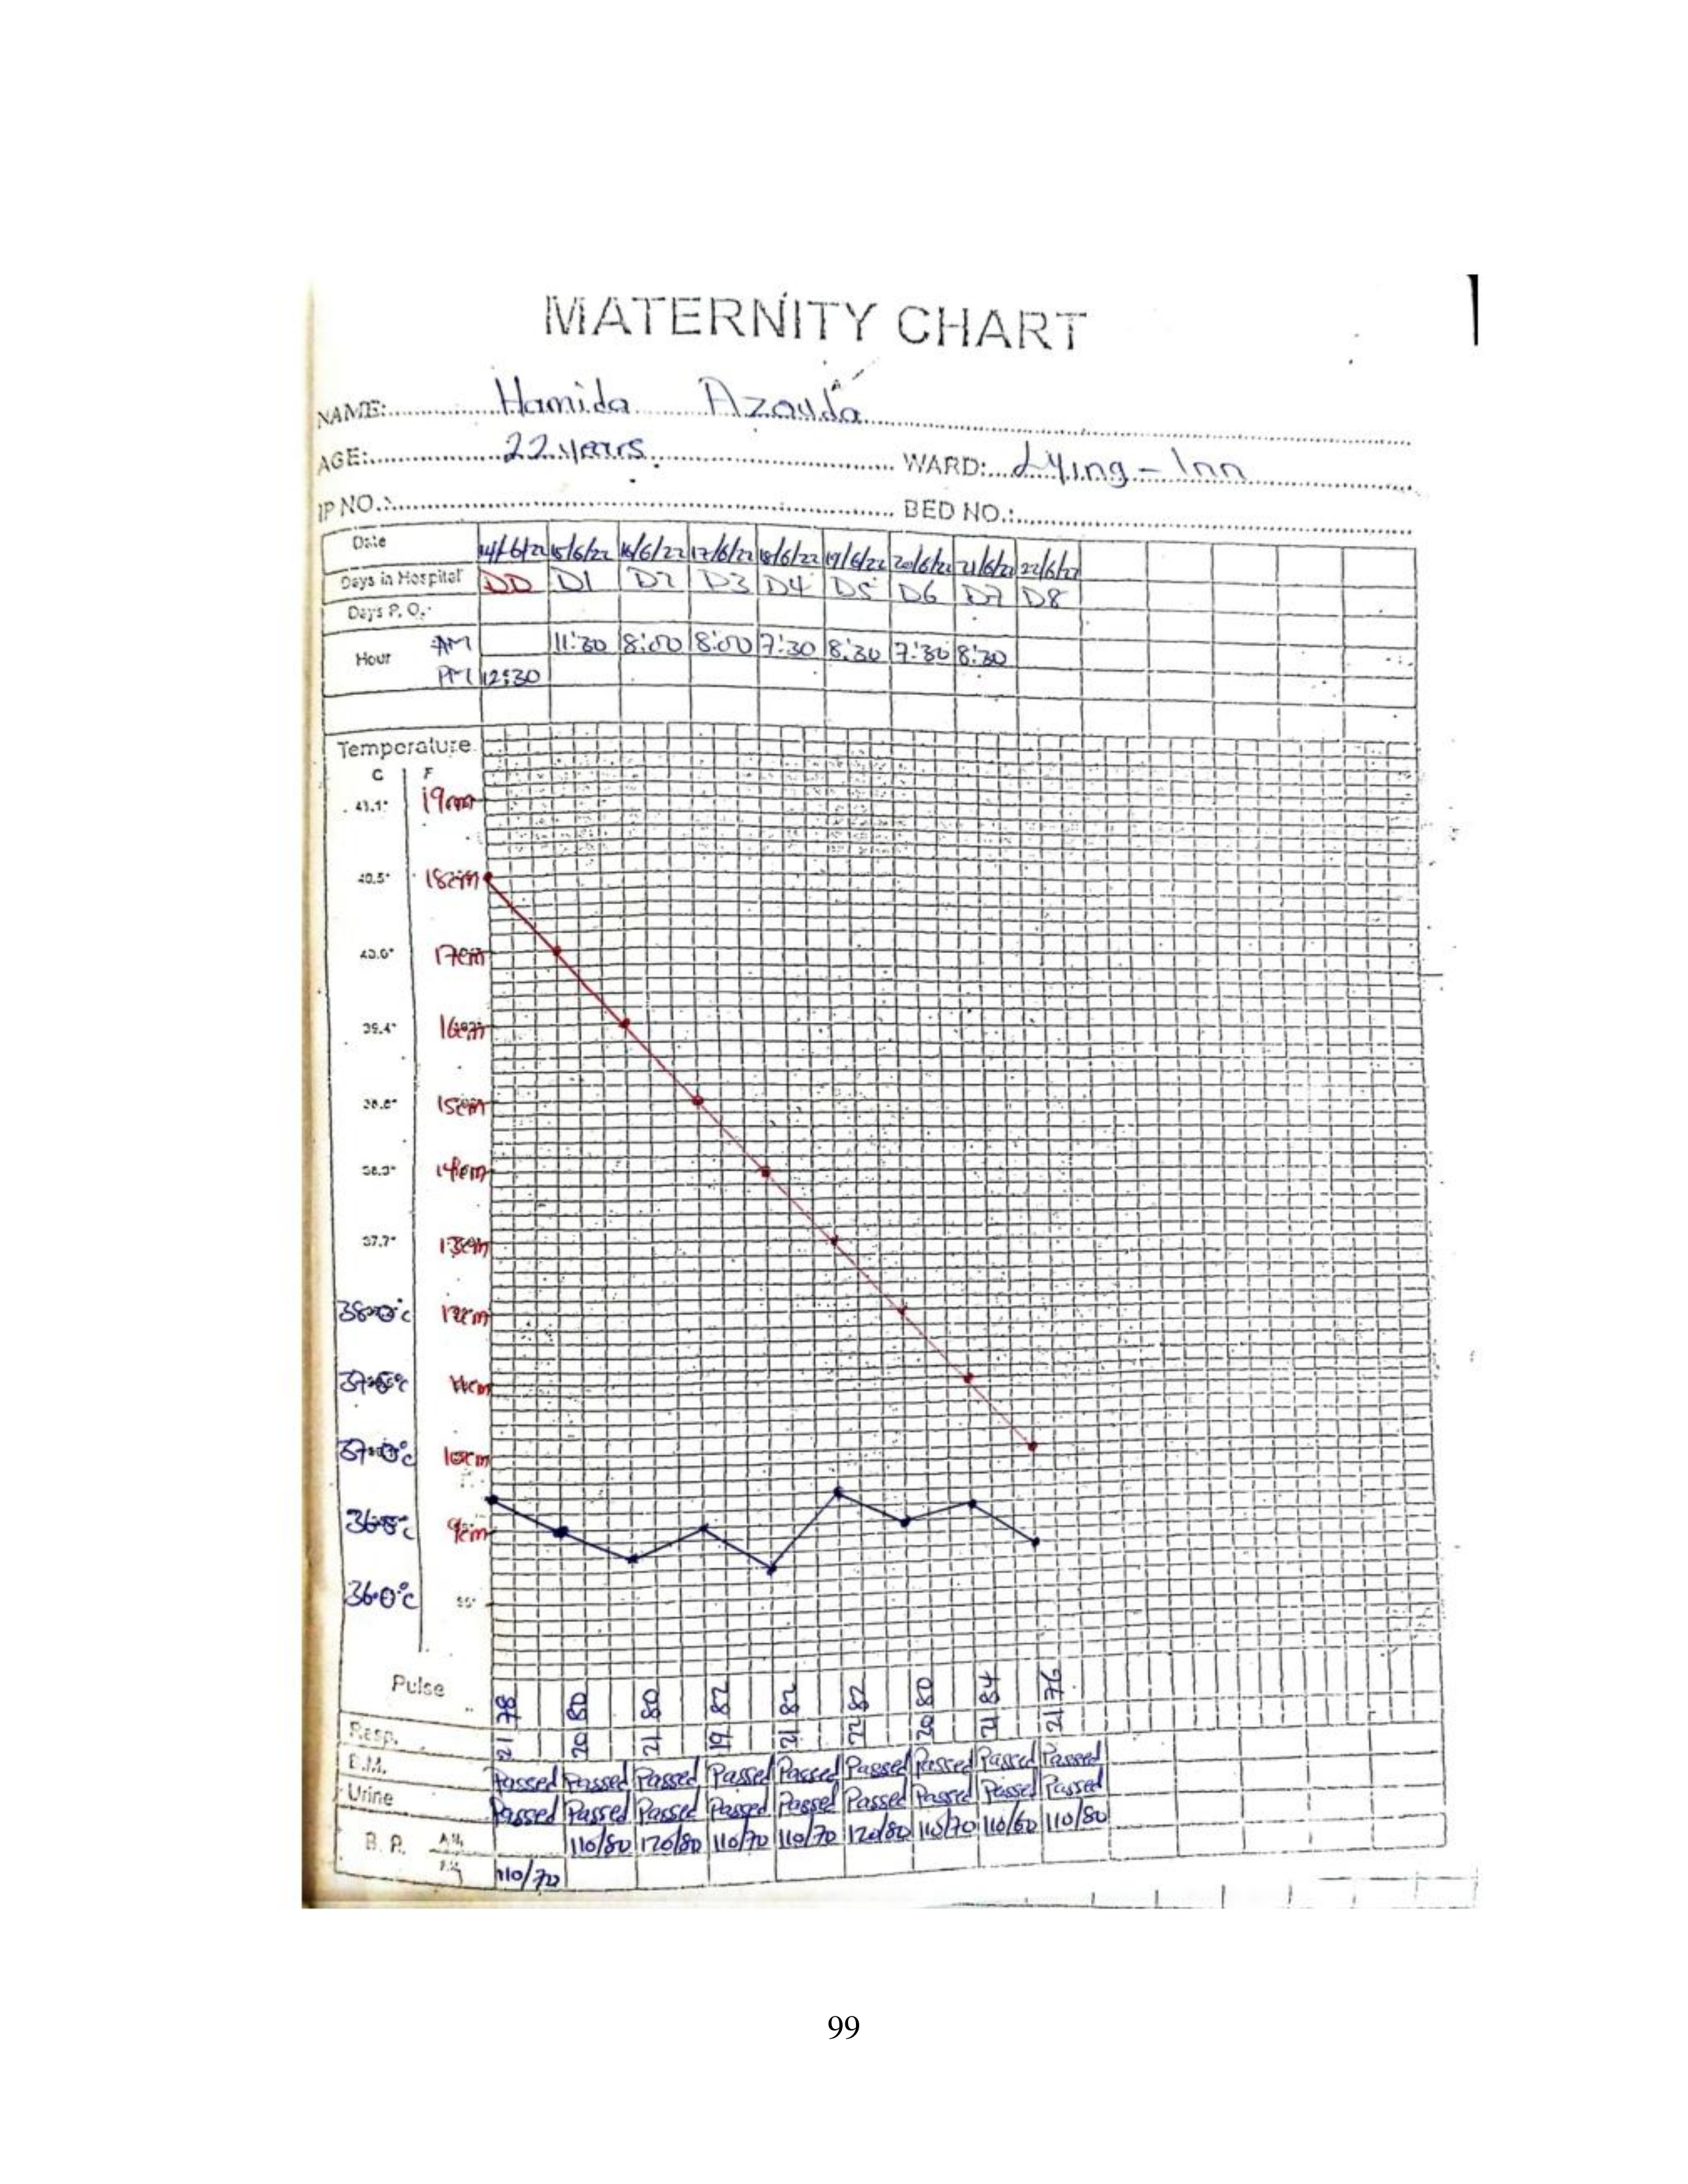 MATERNITY CHART
NAME: Hamida Azauda
AGE: 22 years WARD: Lying-Inn
IP NO.: BED NO.:
Date 14/6/22 15/6/22 16/6/22 17/6/22 18/6/22 19/6/22 20/6/22 21/6/22 22/6/22
Days in Hospital DD D1 D2 D3 D4 D5 D6 D7 D8
Days P. O.
Hour AM 11:30 8:00 8:00 7:30 8:30 7:30 8:30
PM 12:30
Temperature
C F
41.1° 19cm
40.5° 18cm
17cm
39.4° 16cm
15cm
14cm
37.7° 13cm
38.0°c 12cm
37.5°c 11cm
37.0°c 10cm
36.5°c 9cm
36.0°c
Pulse 78 80 80 82 82 82 80 84 76
Resp. 21 20 21 19 21 22 20 21 21
B.M. Passed Passed Passed Passed Passed Passed Passed Passed Passed
Urine Passed Passed Passed Passed Passed Passed Passed Passed Passed
B. P. A.M. 110/80 120/80 110/70 110/70 120/80 110/70 110/60 110/80
110/70
99